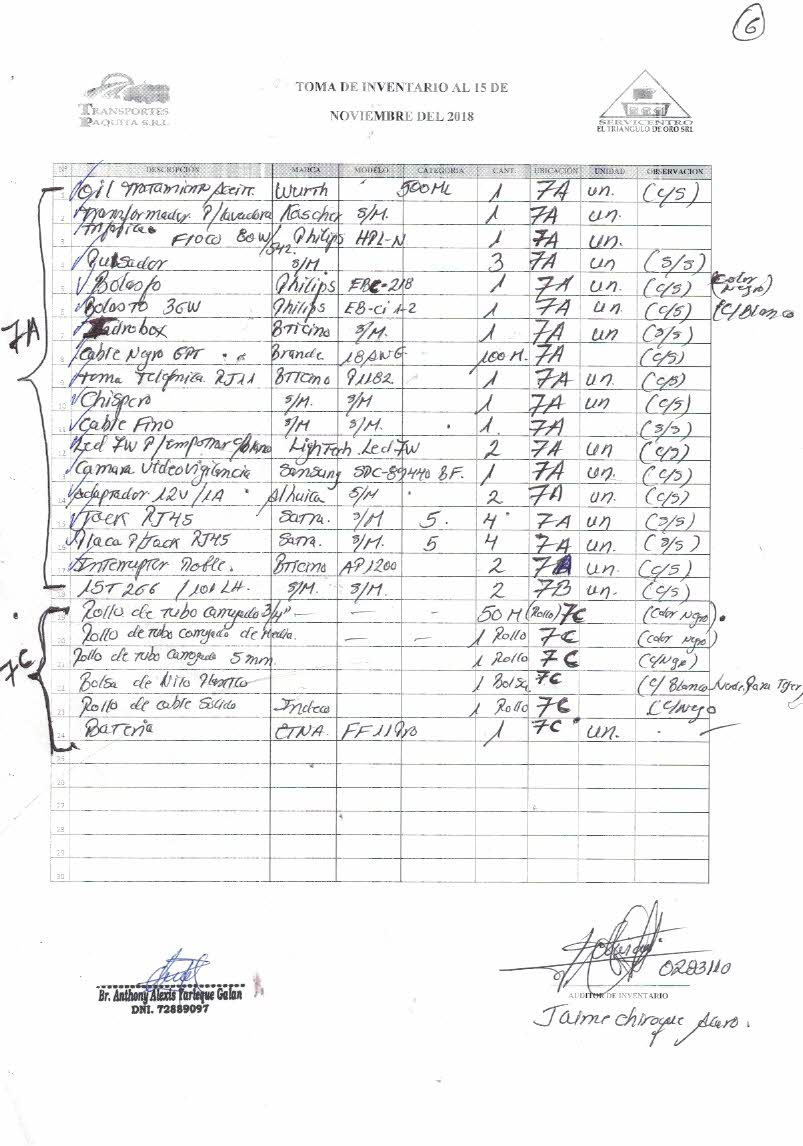 6
TRANSPORTES
PAQUITA S.R.L
TOMA DE INVENTARIO AL 15 DE
NOVIEMBRE DEL 2018
SERVICENTRO
EL TRIANGULO DE ORO SRL
Nº DESCRIPCION MARCA MODELO CATEGORIA CANT. UBICACIÓN UNIDAD OBSERVACION
7A
1 Oil Tratamiento Aceit. Wurth 500ML 1 7A un. (c/s)
2 Transformador P/lavadora Kascher S/M. 1 7A un.
3 Foco 80W/542. Philips HPL-N 1 7A un.
4 Pulsador S/M. 3 7A un (s/s)
5 Balasto Philips EBC-218 1 7A un (c/s) (Color Negro)
6 Balasto 36W Philips EB-Ci 1-2 1 7A un. (c/s) (C/Blanco
7 Bticino S/M. 1 7A un (s/s)
8 Cable Negro GPT Brande 18AWG 100 M. 7A (c/s)
9 Toma Telefonica RJ11 Bticino 91182 1 7A un. (c/s)
10 Chispero S/M. S/M 1 7A un (c/s)
11 Cable Fino S/M S/M. 1. 7A (s/s)
12 Led 7W P/empotrar LighTech Led 7W 2 7A un (c/s)
13 Camara Videovigilancia Samsung SDC-89440 BF. 1 7A un. (c/s)
14 Adaptador 12V/1A Alhuica S/M 2 7A un. (c/s)
15 Jack RJ45 Satra. S/M 5. 4 7A un (s/s)
16 Placa P/Jack RJ45 Satra. S/M. 5 4 7A un. (s/s)
17 Interruptor Doble. Bticino AP1200 2 7A un. (c/s)
18 1ST 266 / 101 LH. S/M. S/M. 2 7B un. (c/s)
7C
19 Rollo de tubo Corrugado 3/4" — — — 50 M (Rollo) 7C (Color Negro).
20 Rollo de tubo Corrugado de Media. — — 1 Rollo 7C (color Negro)
21 Rollo de tubo Corrugado 5 mm. 1 Rollo 7C (C/Negro)
22 Bolsa de Nilo Plastico 1 Bolsa 7C (C/Blanco
23 Rollo de cable Solido Indeco 1 Rollo 7C (C/Negro
24 Bateria ETNA. FF 11 Pro 1 7C un. -
25
26
27
28
29
30
Br. Anthony Alexis Yarleque Galan
DNI. 72889097
0283110
AUDITOR DE INVENTARIO
Jaime Chiroque